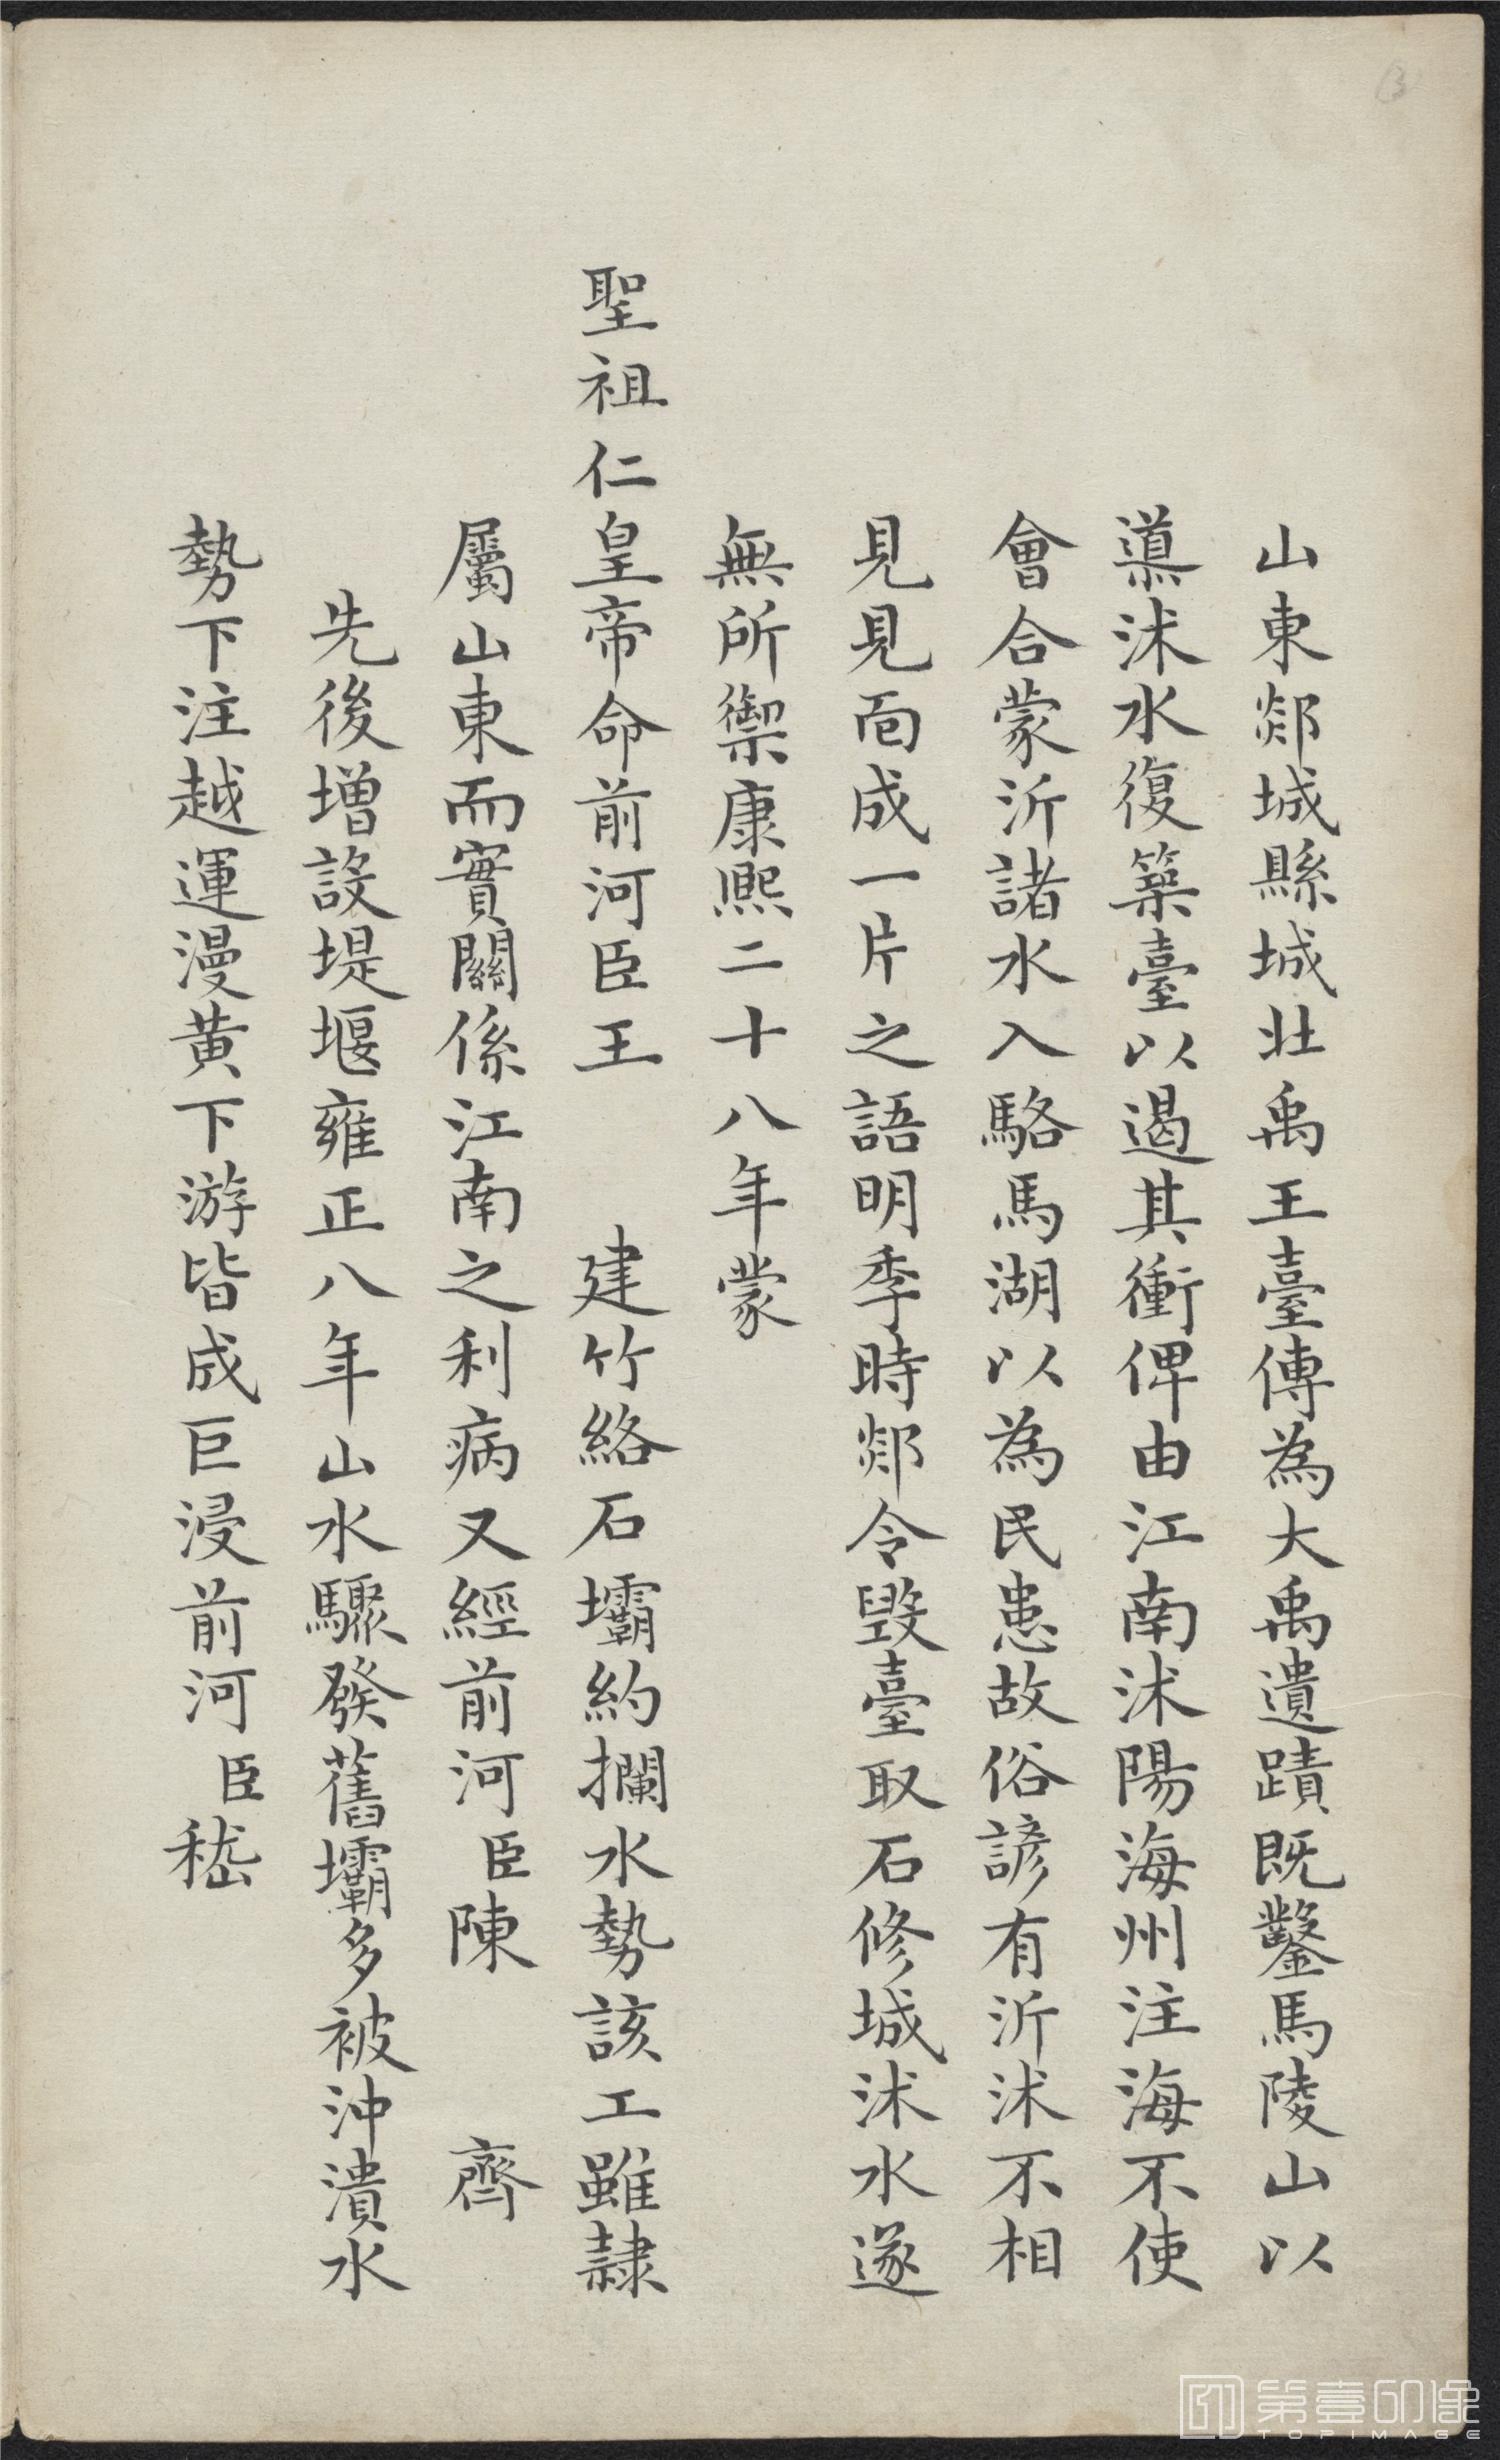 山東郯城縣城北禹王臺傳為大禹遺蹟既鑿馬陵山以
導沭水復築臺以遏其衝俾由江南沭陽海州注海不使
會合蒙沂諸水入駱馬湖以為民患故俗諺有沂沭不相
見見面成一片之語明季時郯令毀臺取石修城沭水遂
無所禦康熙二十八年蒙
聖祖仁皇帝命前河臣王 建竹絡石壩約攔水勢該工雖隸
屬山東而實關係江南之利病又經前河臣陳 齊
先後增設堤堰雍正八年山水驟發舊壩多被沖潰水
勢下注越運漫黄下游皆成巨浸前河臣嵇
第壹印像
TOPIMAGE